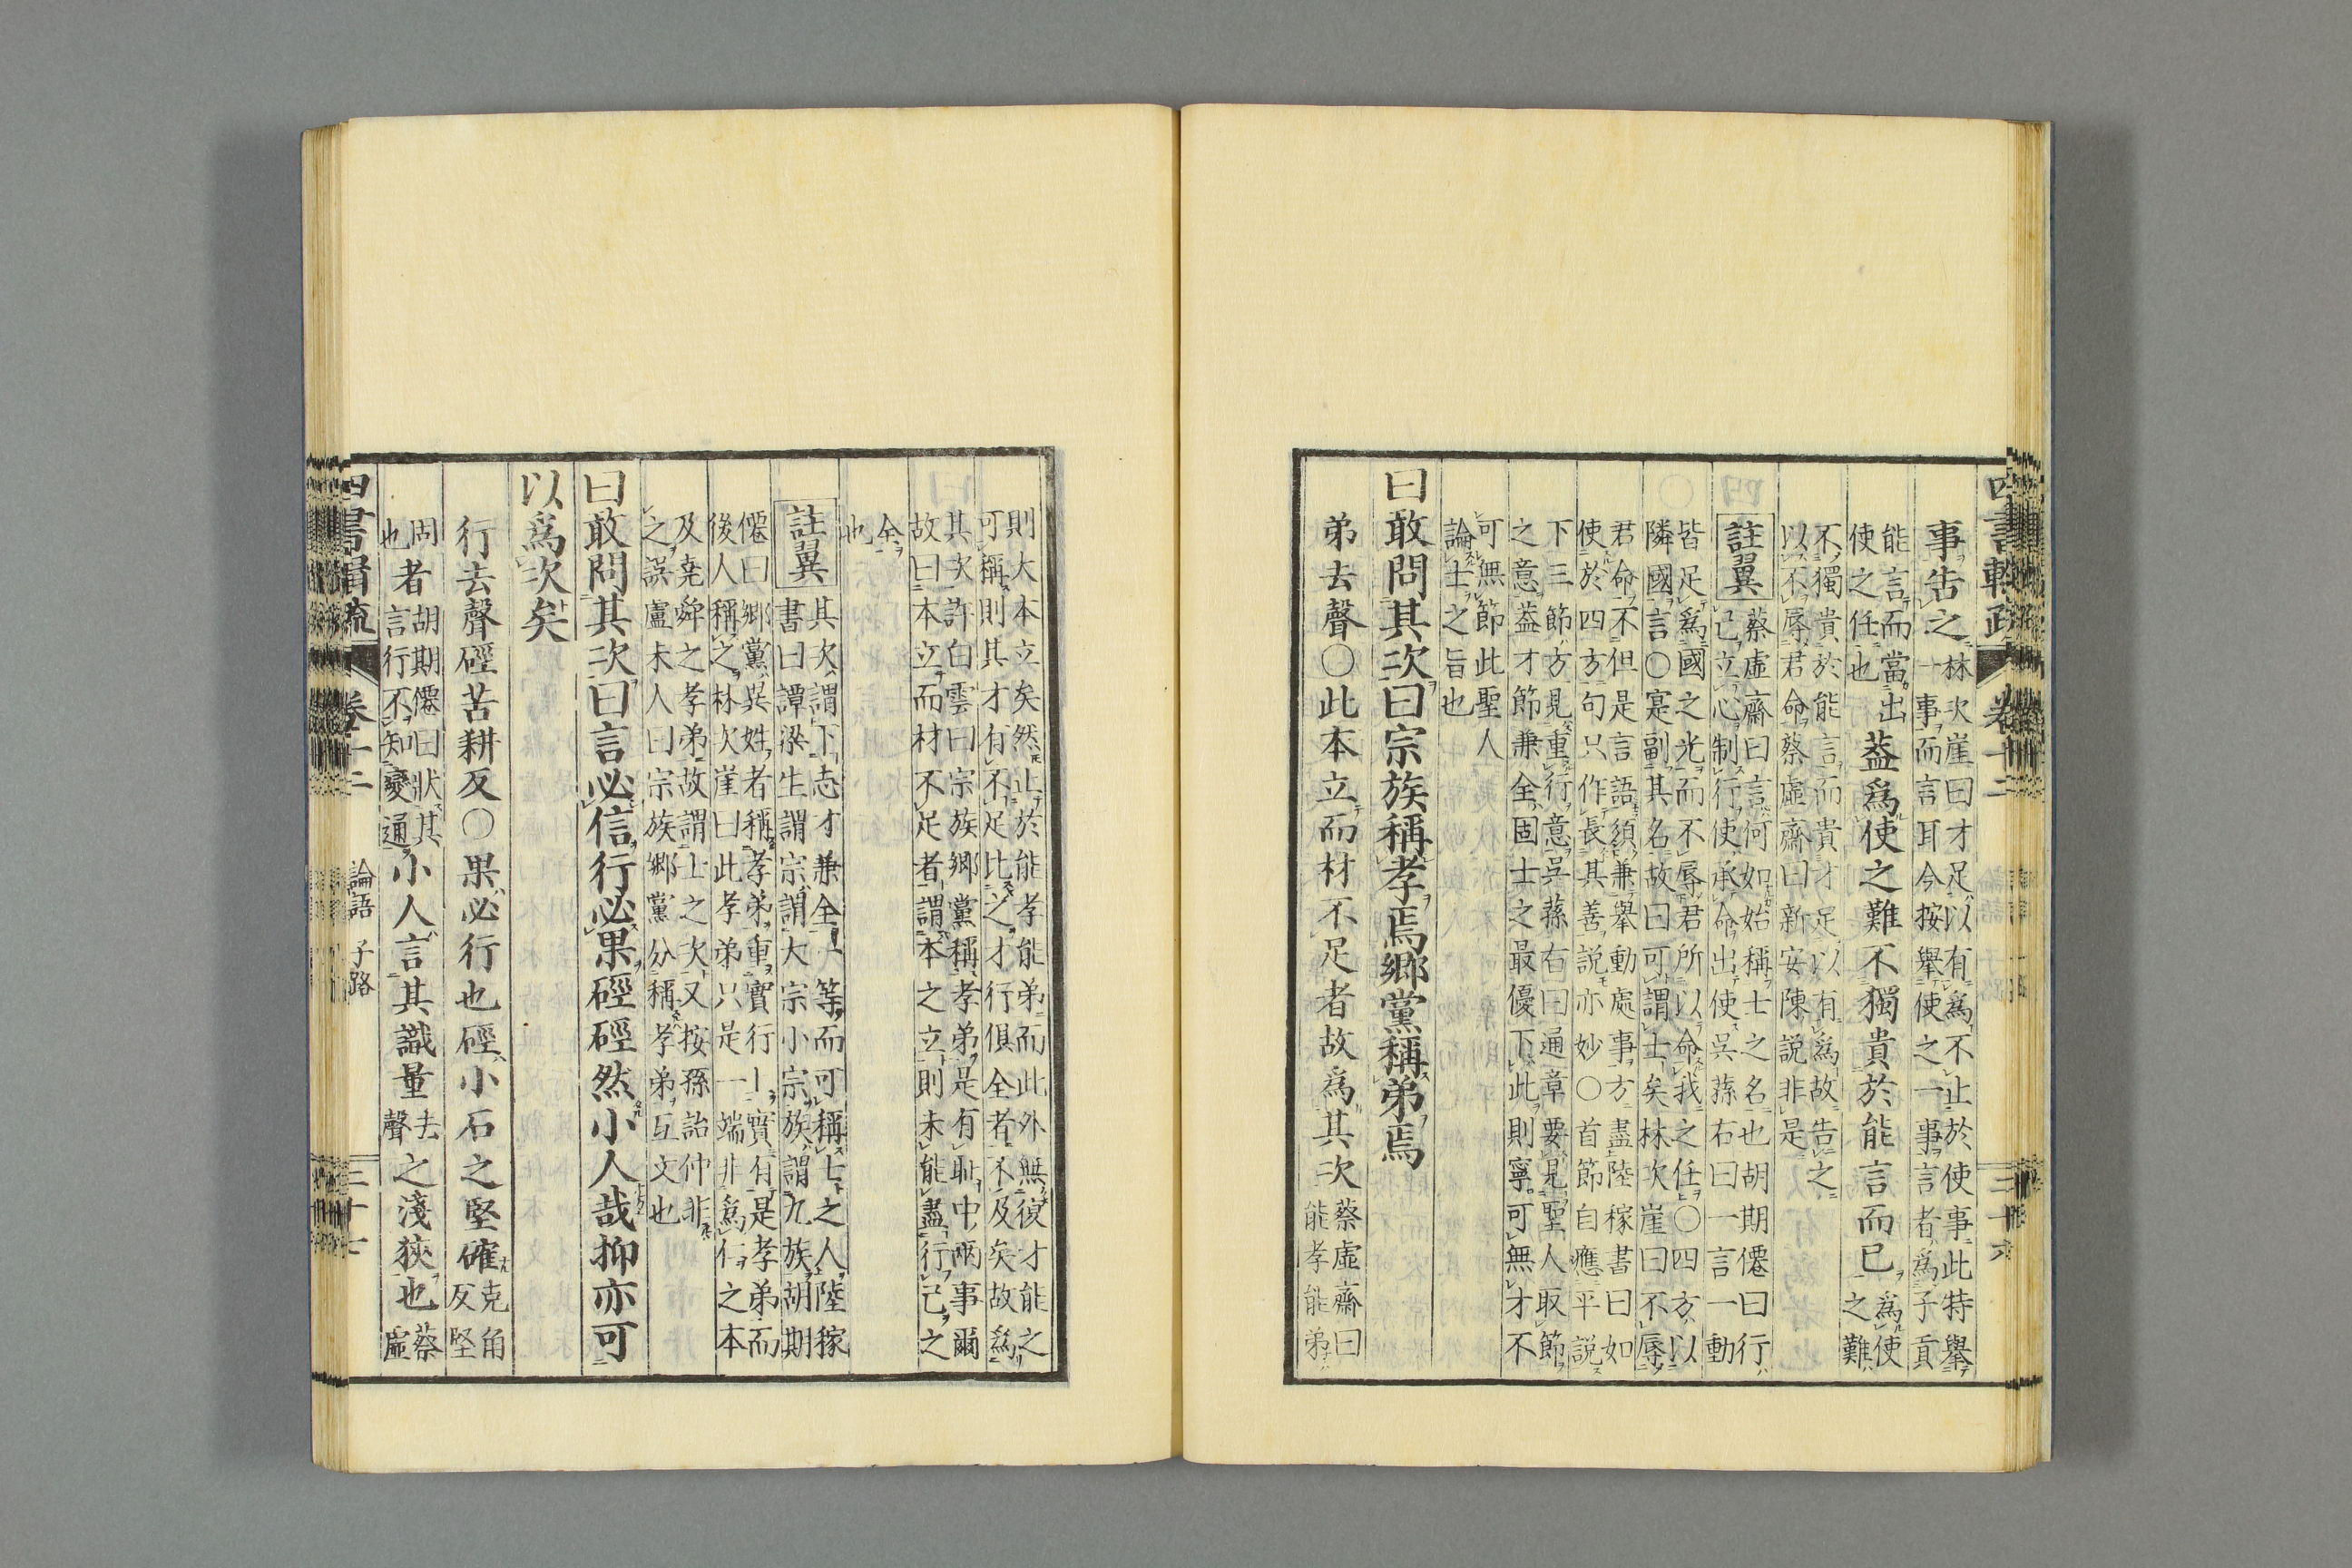 四書輯疏 卷十二 三十六
事告之林次崖曰才足以有爲不止於使事此特舉
一事而言耳今按舉使之一事言者爲子貢
能言而當出
使之任也蓋爲使之難不獨貴於能言而已爲使
之難
不獨貴於能言而貴才足以有爲故告之
以不辱君命蔡虛齋曰新安陳説非是
註翼蔡虛齋曰言何如始稱士之名也胡期僊曰行
己立心制行使承命出使吳蓀右曰一言一動
皆足爲國之光而不辱君所以命我之任〇四方以
隣國言〇寔副其名故曰可謂士矣林次崖曰不辱
君命不但是言語須兼舉動處事方盡陸稼書曰如
使於四方句只作長其善説亦妙〇首節自應平説
下三節方見重行意吳蓀右曰通章要見聖人取節
之意蓋才節兼全固士之最優下此則寧可無才不
可無節此聖人
論士之旨也
曰敢問其次曰宗族稱孝焉鄉黨稱弟焉
弟去聲〇此本立而材不足者故爲其次蔡虛齋曰
能孝能弟
則大本立矣然止於能孝能弟而此外無復才能之
可稱則其才有不足比之才行俱全者不及矣故爲
其次許白雲曰宗族鄉黨稱孝弟是有恥中兩事爾
故曰本立而材不足者謂本之立則未能盡行己之
全
也
註翼其次謂下志才兼全一等而可稱士之人陸稼
書曰譚梁生謂宗謂大宗小宗族謂九族胡期
僊曰鄉黨異姓者稱孝弟重實行上實有是孝弟而
後人稱之林次崖曰此孝弟只是一端非爲仁之本
及堯舜之孝弟故謂士之次又按孫詒仲非
之誤盧未人曰宗族鄉黨分稱孝弟互文也
曰敢問其次曰言必信行必果硜硜然小人哉抑亦可
以爲次矣
行去聲硜苦耕反〇果必行也硜小石之堅確克角
反堅
固者胡期僊曰狀其
言行不知變通小人言其識量去
聲之淺狹也蔡
虛
也
四書輯疏 卷十二 論語 子路 三十七